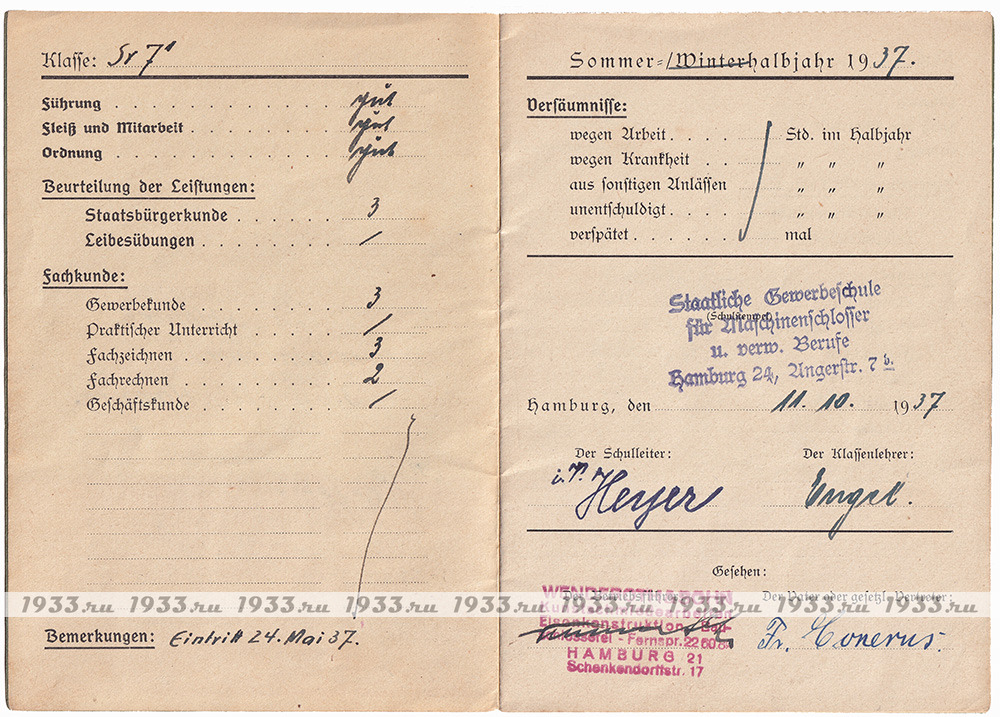 Klasse: Sr 7a
Führung gut
Fleiß und Mitarbeit gut
Ordnung gut
Beurteilung der Leistungen:
Staatsbürgerkunde 3
Leibesübungen /
Fachkunde:
Gewerbekunde 3
Praktischer Unterricht /
Fachzeichnen 3
Fachrechnen 2
Geschäftskunde /
Bemerkungen: Eintritt 24. Mai 37.
Sommer=/Winterhalbjahr 1937.
Versäumnisse:
wegen Arbeit Std. im Halbjahr
wegen Krankheit " " "
aus sonstigen Anlässen " " "
unentschuldigt " " "
verspätet mal
Staatliche Gewerbeschule
(Schulstempel)
für Maschinenschlosser
u. verw. Berufe
Hamburg 24, Angerstr. 7 b.
Hamburg, den 11. 10. 1937
Der Schulleiter: Der Klassenlehrer:
i. V. Heyer Engel.
Gesehen:
Der Betriebsführer: Der Vater oder gesetzl. Vertreter:
Eisenkonstruktion - Bau-
schlosserei - Fernspr. 22 60 84
HAMBURG 21
Schenkendorffstr. 17
Fr. Conerus.
1933.ru 1933.ru 1933.ru 1933.ru 1933.ru 1933.ru 1933.ru 1933.ru 1933.ru